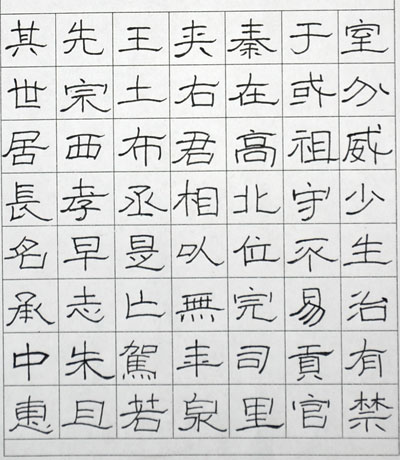 其先王夹秦于室
世宗土右在或分
居西布君高祖威
長孝丞相北宇少
名早是以位不生
承志亡無完易治
中朱駕年司貢有
惠且若泉里官禁